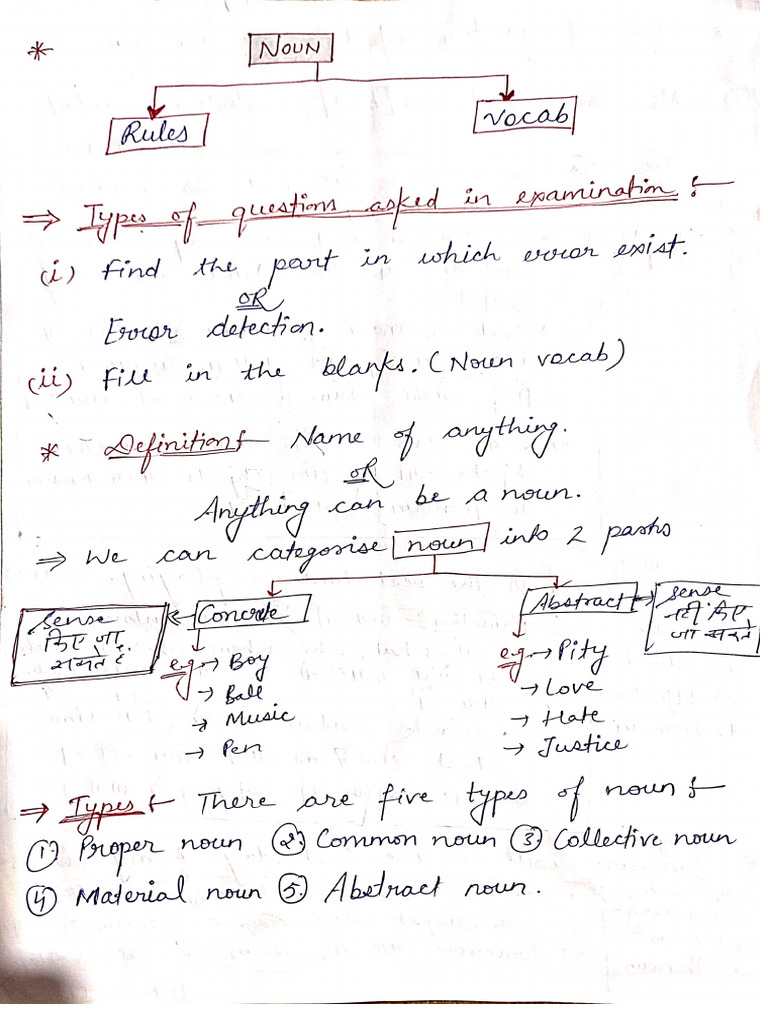 * NOUN
Rules
Vocab
⇒ Types of questions asked in examination :-
(i) Find the part in which error exist.
OR
Error detection.
(ii) Fill in the blanks. (Noun vocab)
* Definition :- Name of anything.
OR
Anything can be a noun.
⇒ We can categorise noun into 2 parts
Concrete
Abstract
sense
किए जा
सकते है
sense
नहीं किए
जा सकते
e.g. → Boy
→ Ball
→ Music
→ Pen
e.g. → Pity
→ Love
→ Hate
→ Justice
⇒ Types :- There are five types of noun :-
① Proper noun ② Common noun ③ Collective noun
④ Material noun ⑤ Abstract noun.